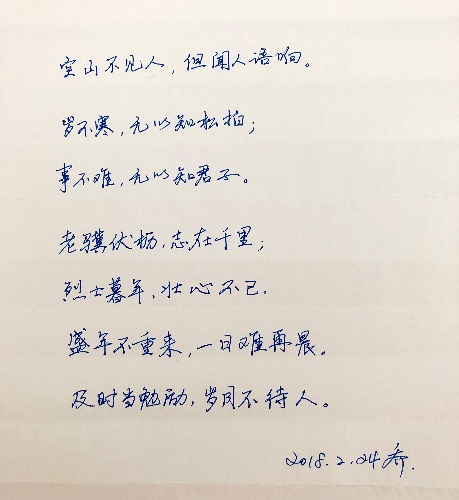 空山不见人，但闻人语响。
岁不寒，无以知松柏；
事不难，无以知君子。
老骥伏枥，志在千里；
烈士暮年，壮心不已.
盛年不重来，一日难再晨。
及时当勉励，岁月不待人。
2018.2.24 乔.